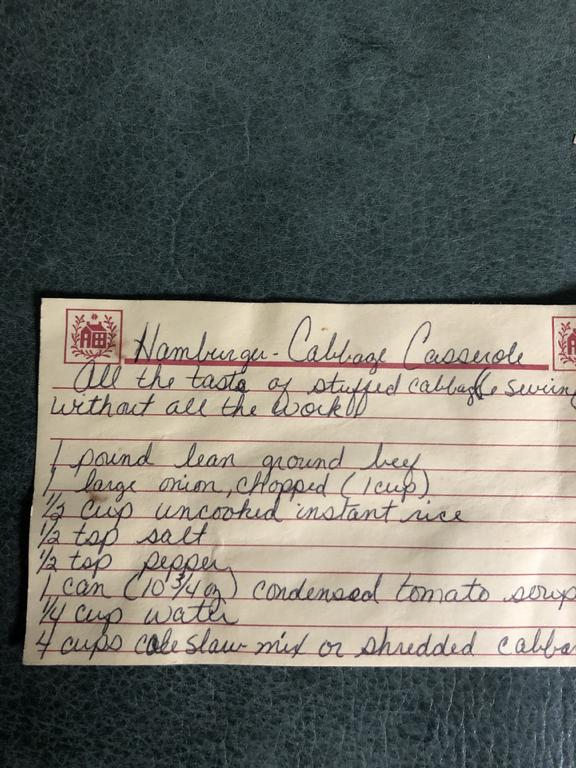 Hamburger-Cabbage Casserole
All the taste of stuffed cabbage
without all the work!)
1 pound lean ground beef
1 large onion, chopped (1 cup)
1/2 cup uncooked instant rice
1/2 tsp salt
1/2 tsp pepper
1 can (10 3/4 oz) condensed tomato soup
1/4 cup water
4 cups cole slaw mix or shredded cabba